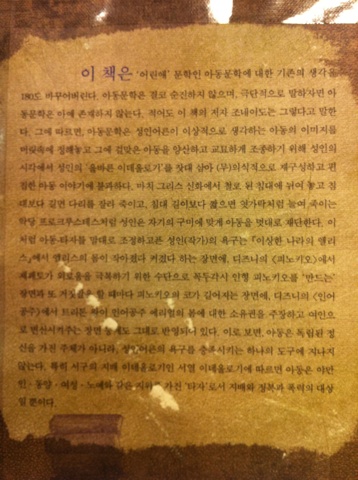 이 책은 '어린애' 문학인 아동문학에 대한 기존의 생각을
180도 바꾸어버린다. 아동문학은 결코 순진하지 않으며, 극단적으로 말하자면 아
동문학은 아예 존재하지 않는다. 적어도 이 책의 저자 조내이도는 그렇다고 말한
다. 그에 따르면, 아동문학은 성인어른이 이상적으로 생각하는 아동의 이미지를
머릿속에 정해놓고 그에 걸맞은 아동을 양산하고 교묘하게 조종하기 위해 성인의
시각에서 성인의 '올바른 이데올로기'를 잣대 삼아 (무)의식적으로 재구성하고 편
집한 아동 이야기에 불과하다. 마치 그리스 신화에서 철로 된 침대에 뉘여 놓고 침
대보다 길면 다리를 잘라 죽이고, 침대 길이보다 짧으면 엿가락처럼 늘여 죽이는
악당 프로크루스테스처럼 성인은 자기의 구미에 맞게 아동을 멋대로 재단한다. 이
처럼 아동-타자를 맘대로 조정하고픈 성인(작가)의 욕구는 『이상한 나라의 앨리
스』에서 앨리스의 몸이 작아졌다 커졌다 하는 장면에, 디즈니의 《피노키오》에서
제페토가 외로움을 극복하기 위한 수단으로 목두각시 인형 피노키오를 '만드는'
장면과 또 거짓말을 할 때마다 피노키오의 코가 길어지는 장면에, 디즈니의 《인어
공주》에서 트리톤 왕이 인어공주 에리얼의 몸에 대한 소유권을 주장하고 여인으
로 변신시켜주는 장면 그대로 반영되어 있다. 이로 보면, 아동은 독립된 정
신을 가진 주체가 아니라, 성인어른의 욕구를 충족시키는 하나의 도구에 지나지
않는다. 특히 서구의 지배 이데올로기인 서열 이데올로기에 따르면 아동은 야만
인·동양·여성·노예와 같은 지위를 가진 '타자'로서 지배와 정복과 폭력의 대상
일 뿐이다.